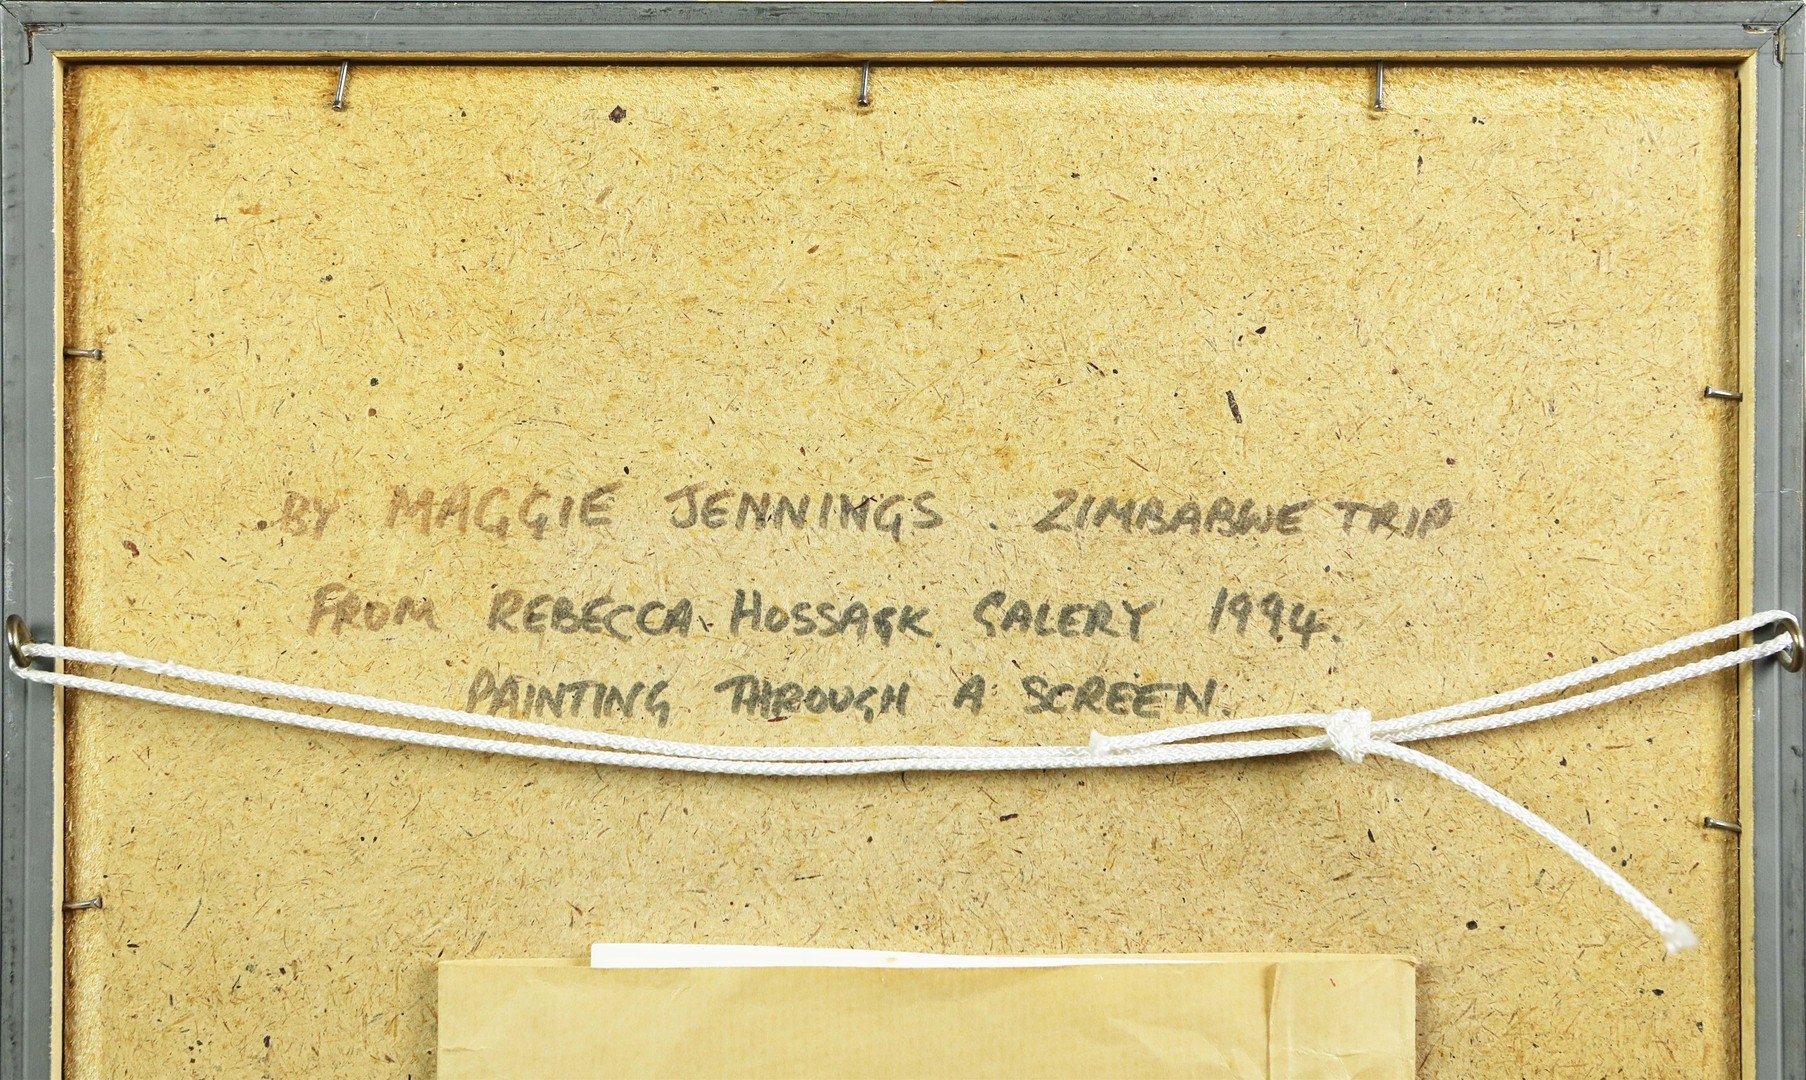 BY MAGGIE JENNINGS. ZIMBABWE TRIP
FROM REBECCA HOSSACK GALERY 1994.
PAINTING THROUGH A SCREEN.